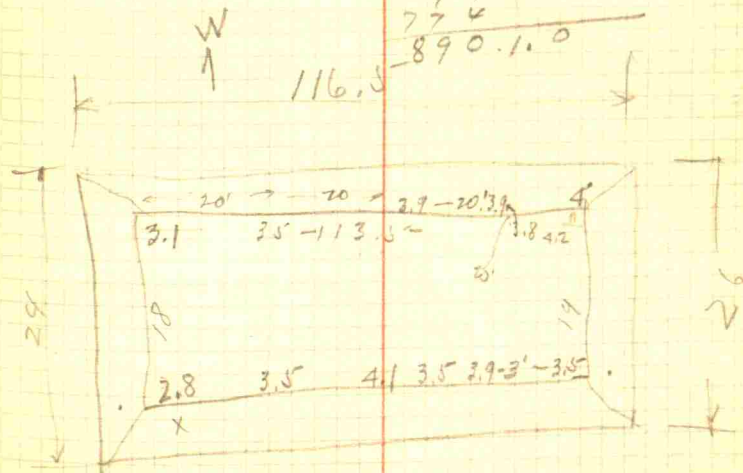 W
774
890.1.0
116.5
20' 20 3.9-20' 3.9 4'
3.1 35-113.5- 3.8 4.2
18
2.8 3.5 4.1 3.5 3.9-3'-3.5
x
26